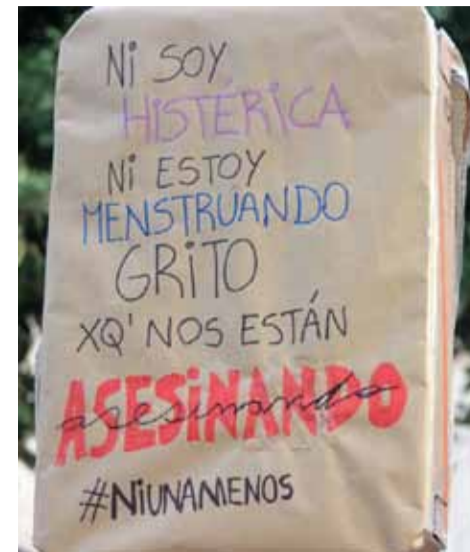 Ni SOY
HISTÉRICA
Ni ESTOY
MENSTRUANDO
GRiTO
XQ' NOS ESTÁN
ASESiNANDO
asesinando
#NiUNAMENOS